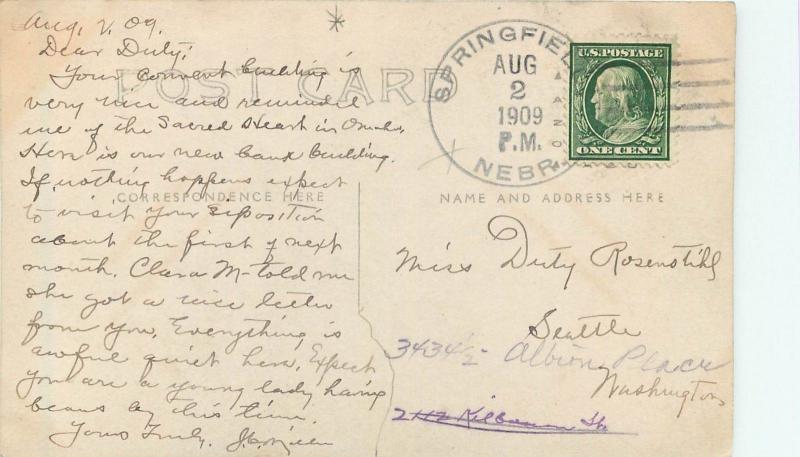 Aug, 2, 09.
Dear Duty;
Your convent building is
very nice and reminded
me of the Sacred Heart in Omaha.
Here is our new bank building.
If nothing happens expect
to visit your Exposition
about the first of next
month. Clara M- told me
she got a nice letter
from you. Everything is
awful quiet here. Expect
you are a young lady having
beaus by this time.
Yours Truly,
POST CARD
CORRESPONDENCE HERE
SPRINGFIEL
NEBR.
AUG
2
1909
P.M.
U.S. POSTAGE
ONE CENT
NAME AND ADDRESS HERE
Miss Duty Rosenstihl
Seattle
3434 1/2 - Albion Place
Washington